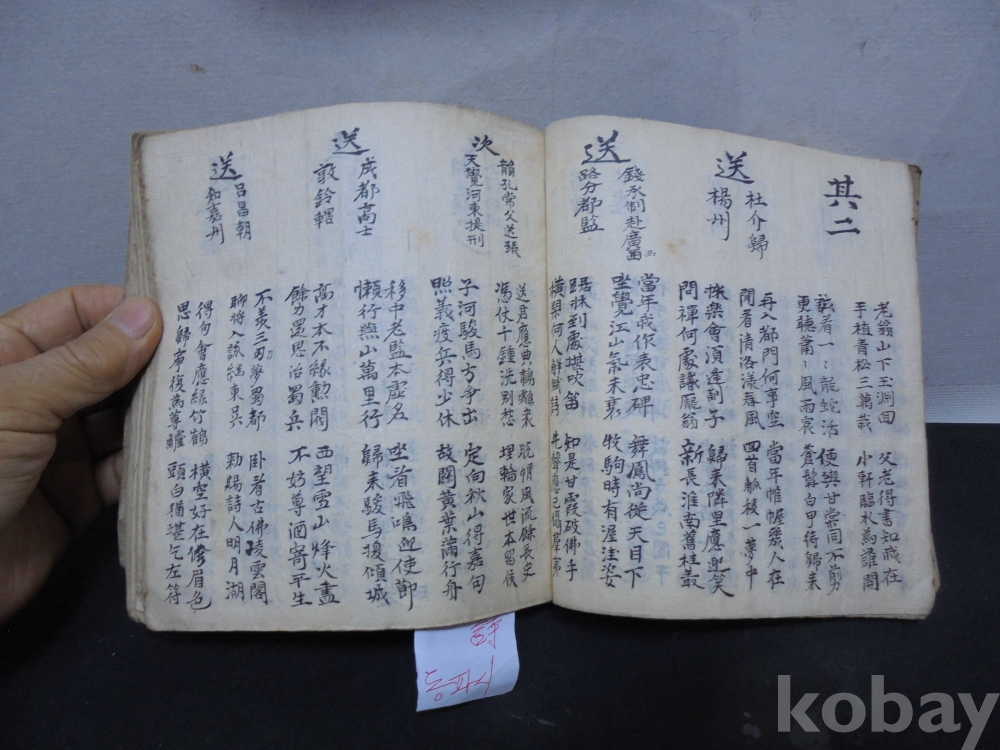 其二
老翁山下玉淵回 父老得書知我在
手植青松三萬栽 小軒臨水為誰開
試看一〻龍蛇活 便與甘棠同不剪
更聽蕭〻風雨哀 蒼髯白甲待歸来
送杜介歸楊州
再入都門何事空 當年帷幄幾人在
閒看清洛漾春風 回首觚稜一夢中
採樂會須逢薊子 歸来隣里應迎笑
問禪何處識龐翁 新長淮南舊桂叢
送錢承制赴廣西路分都監
當年我作表忠碑 舞鳳尚從天目下
坐覺江山氣未衰 牧駒時有渥洼姿
踞牀到處堪吹笛 知是甘霞破佛手
橫槊何人解賦詩 先聲應已
次韻孔常父送張天覺河東提刑
送君應典鷫鸘裘 脫帽風流餘長史
憑仗千鍾洗別愁 埋輪家世本留侯
子河駿馬方爭出 定向秋山得嘉句
照義疲兵得少休 故關黃葉滿行舟
送成都高士敦鈐轄
移中老監本虛名 坐看飛鳴迎使節
懶行燕山萬里行 歸来駿馬援傾城
高才本不緣勳閥 西望雪山烽火盡
餘力還思治蜀兵 不妨尊酒寄平生
送呂昌朝知嘉州
不羨三刀夢蜀都 卧看古佛凌雲閣
聊將八詠継東吳 勅賜詩人明月湖
得句會應緣竹鶴 橫空好在修眉色
思歸寧復為蓴鱸 頭白猶堪乞左符
동파시
詩
kobay